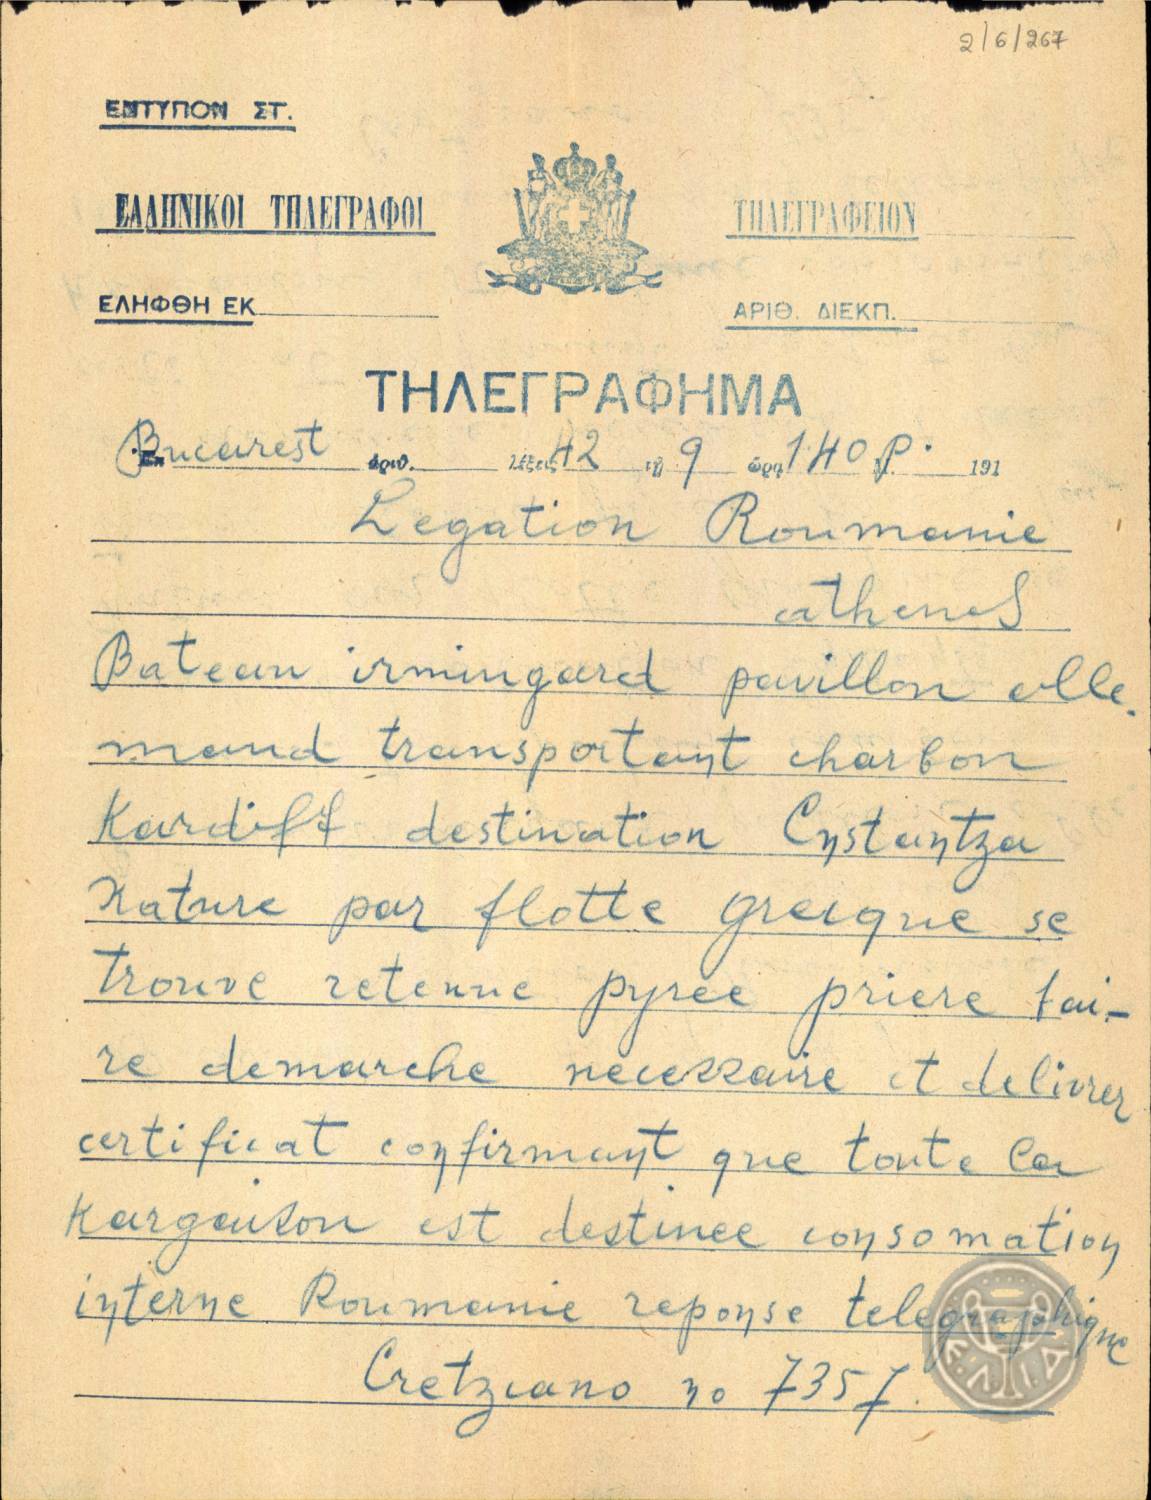 2/6/267
ΕΝΤΥΠΟΝ ΣΤ.
ΕΛΛΗΝΙΚΟΙ ΤΗΛΕΓΡΑΦΟΙ
ΤΗΛΕΓΡΑΦΕΙΟΝ
ΕΛΗΦΘΗ ΕΚ
ΑΡΙΘ. ΔΙΕΚΠ.
ΤΗΛΕΓΡΑΦΗΜΑ
Ἐκ Bucarest ἀριθ. λέξεις 42 τῇ 9 ὥρα 1 40 μ. p. 191
Legation Roumanie
athenes
Bateau irmingard pavillon alle-
mand transportant charbon
Kardiff destination Cηstaηtza
Kature par flotte grecque se
trouve retenue pyree priere fai-
re demarche necessaire et delivrer
certificat coηfirmaηt que toute la
Kargaison est destinee coηsomatioη
iηterηe Roumanie repoηse telegraphique
Cretziano ηo 7357.
Ε.Λ.Ι.Α